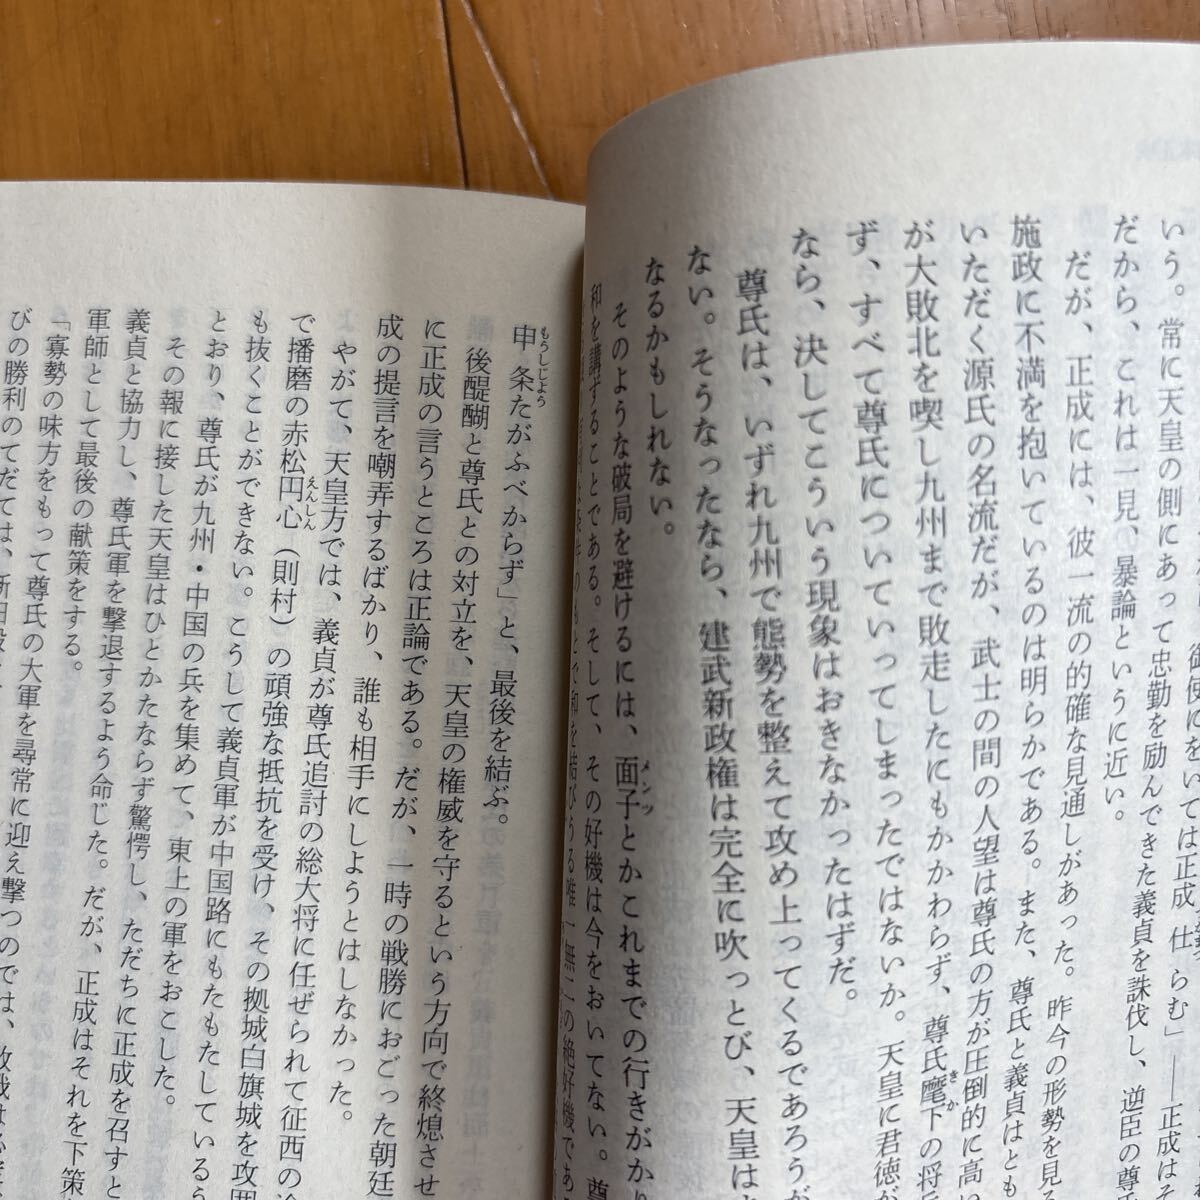 御使においては正成 仕らむ」――正成はそ
いう。常に天皇の側にあって忠勤を励んできた義貞を誅伐し、逆臣の尊
だから、これは一見、暴論というに近い。
だが、正成には、彼一流の的確な見通しがあった。昨今の形勢を見
施政に不満を抱いているのは明らかである。また、尊氏と義貞はとも
いただく源氏の名流だが、武士の間の人望は尊氏の方が圧倒的に高い
が大敗北を喫し九州まで敗走したにもかかわらず、尊氏麾下の将兵
きか
ず、すべて尊氏についていってしまったではないか。天皇に君徳が
なら、決してこういう現象はおきなかったはずだ。
尊氏は、いずれ九州で態勢を整えて攻め上ってくるであろうが
ない。そうなったなら、建武新政権は完全に吹っとび、天皇は
なるかもしれない。
そのような破局を避けるには、面子とかこれまでの行きがかり
メンツ
和を講ずることである。そして、その好機は今をおいてない。尊
条件のもとで和を結びうる唯一無二の絶好機であ
申条たがふべからず」と、最後を結ぶ。
もうしじょう
後醍醐と尊氏との対立を、天皇の権威を守るという方向で終熄させ
に正成の言うところは正論である。だが、一時の戦勝におごった朝廷
成の提言を嘲弄するばかり、誰も相手にしようとはしなかった。
やがて、天皇方では、義貞が尊氏追討の総大将に任ぜられて征西の
で播磨の赤松円心（則村）の頑強な抵抗を受け、その拠城白旗城を攻囲
えんしん
も抜くことができない。こうして義貞軍が中国路にもたもたしているう
とおり、尊氏が九州・中国の兵を集めて、東上の軍をおこした。
その報に接した天皇はひとかたならず驚愕し、ただちに正成を召すと
義貞と協力し、尊氏軍を撃退するよう命じた。だが、正成はそれを下策
軍師として最後の献策をする。
「寡勢の味方をもって尊氏の大軍を尋常に迎え撃つのでは、敗戦は必
びの勝利のてだては、新田殿